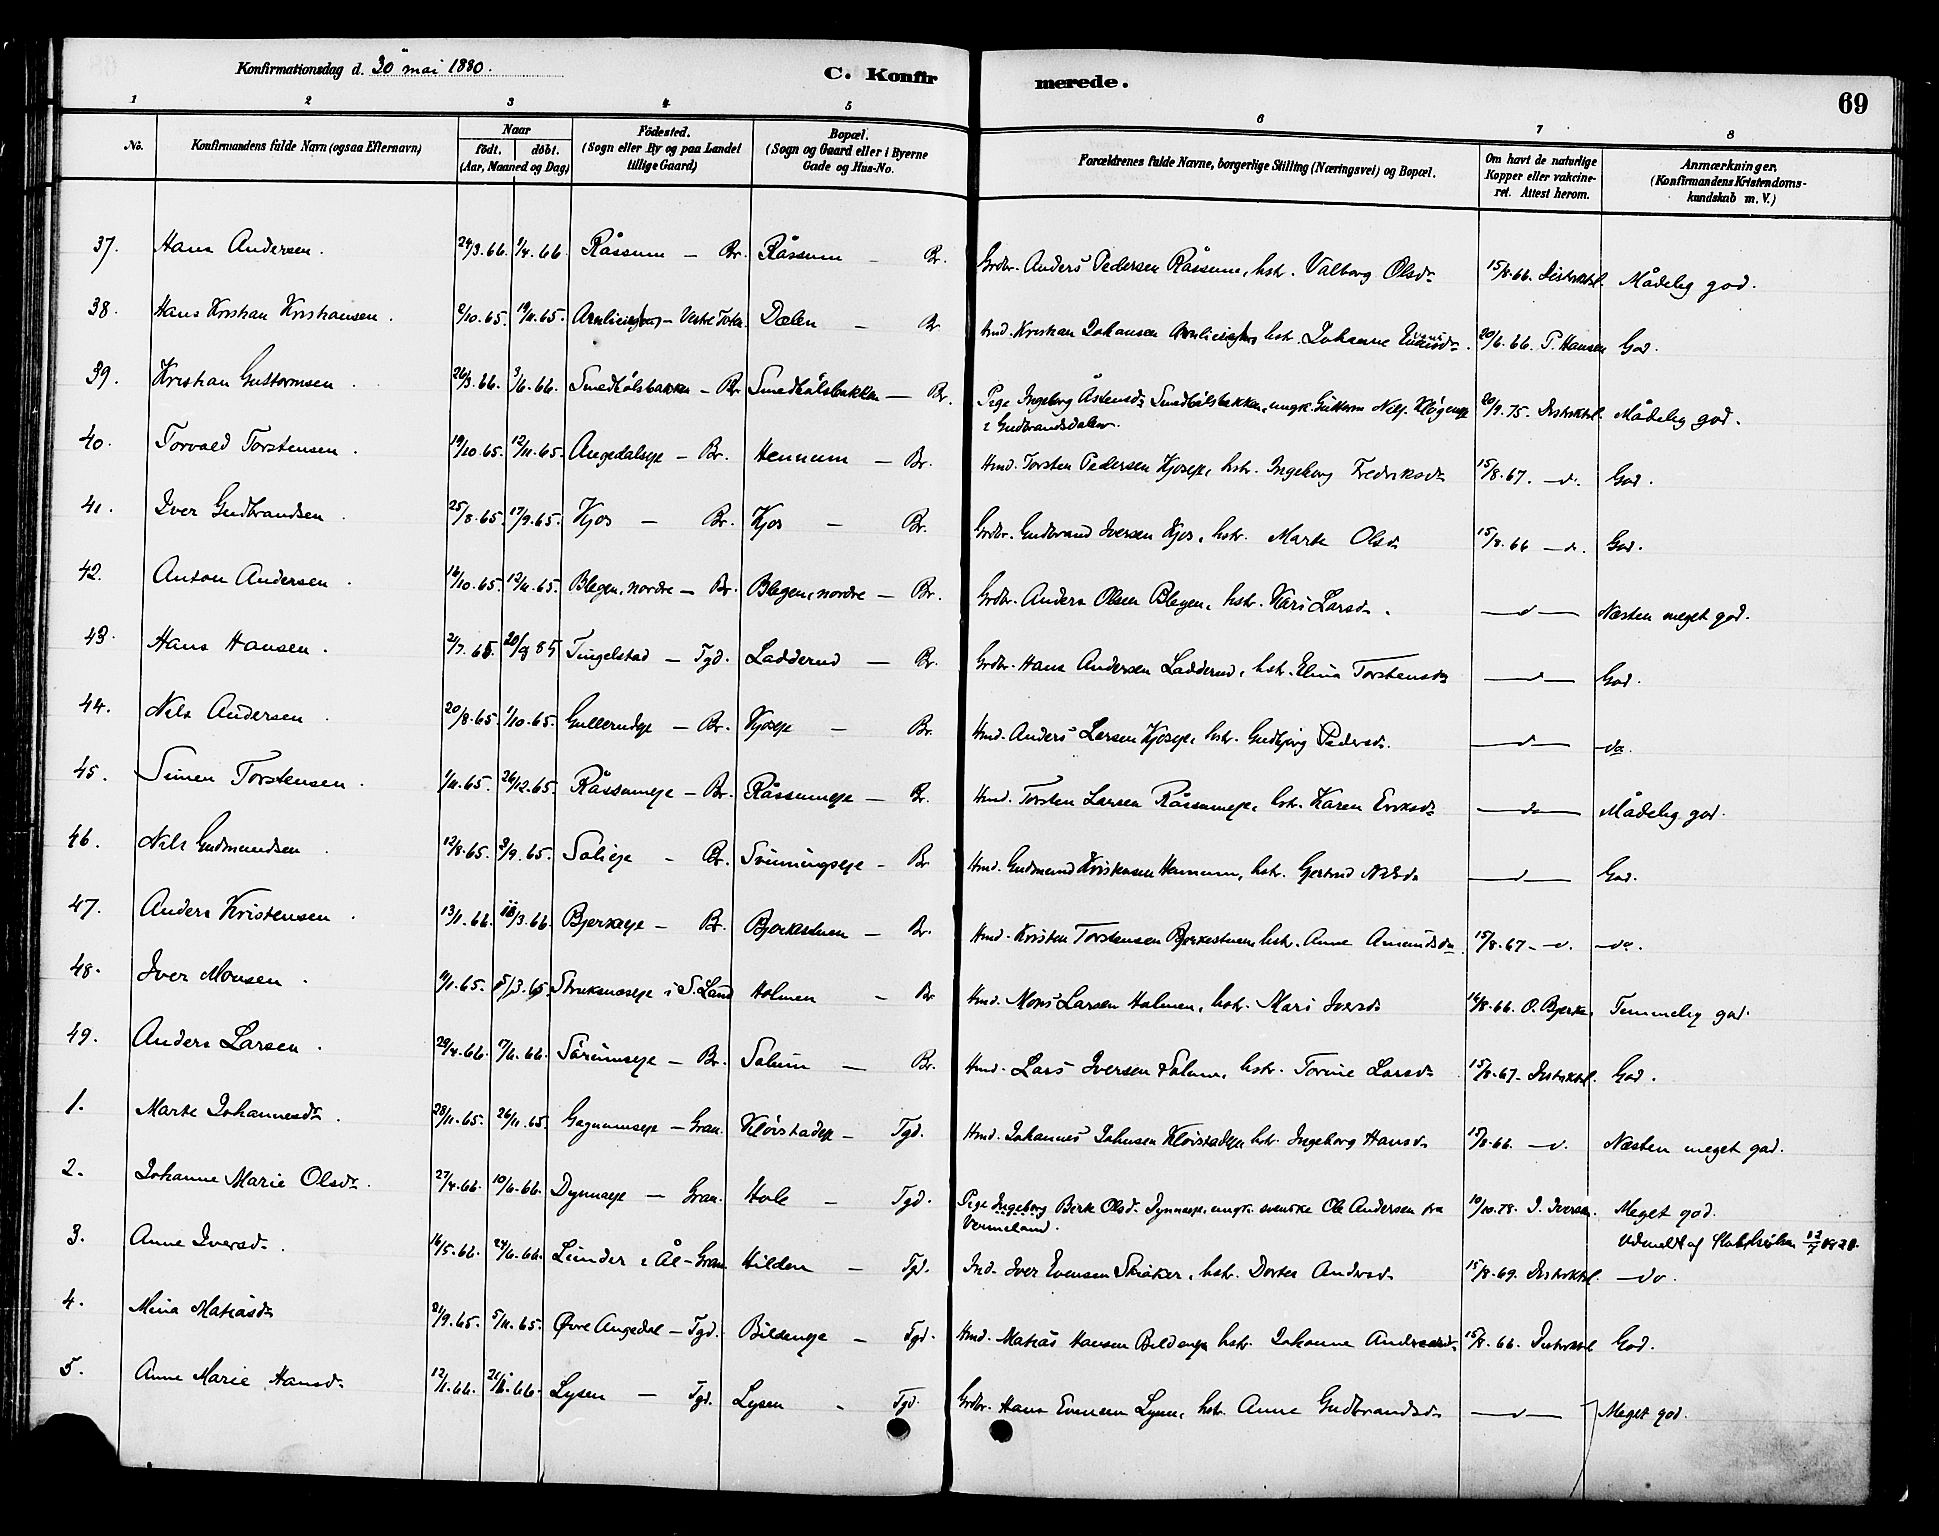 Konfirmationsdag d. 30 mai 1880.
C. Konfirmerede.
69
1 2 3 4 5 6 7 8
No.
Konfirmandens fulde Navn (ogsaa Efternavn)
Naar
födt. döbt.
(Aar, Maaned og Dag)
Födested.
(Sogn eller By og paa Landet
tillige Gaard)
Bopæl.
(Sogn og Gaard eller i Byerne
Gade og Hus-No.
Forældrenes fulde Navne, borgerlige Stilling (Næringsvei) og Bopæl.
Om havt de naturlige
Kopper eller vakcine-
ret. Attest herom.
Anmærkninger.
(Konfirmandens Kristendoms-
kundskab m. V.)
37. Hans Andersen. 24/3.66. 1/4.66 Råssum — Br. Råssum — Br. Grdbr. Anders Pedersen Råssum, hstr. Valborg Olsdr 15/8.66. Distriktsl. Mådelig god.
38. Hans Kristian Kristiansen. 2/10.65. 19/11.65. Vestre Toten. Dælen — Br. Hmd. Kristian Johansen hstr. Johanne 20/6.66. P. Hansen God.
39. Kristian Guttormsen. 26/3.66. 3/6.66. Smedbölsbakken — Br. Smedbölsbakken — Br. Pige Ingeborg Åstensdr Smedbölsbakken, ungk. Guttorm Nilss. 20/9.75. Distriktsl. Mådelig god.
i Gudbrandsdalen.
40. Torvald Torstensen. 19/10.65. 12/11.65. Angedalseje — Br. Hennum — Br. Hmd. Torsten Pedersen Kjoseje, hstr. Ingeborg Fredriksdr 15/8.67. —d. God.
41. Iver Gudbrandsen. 25/8.65. 17/9.65. Kjos — Br. Kjos — Br. Grdbr. Gudbrand Iversen Kjos, hstr. Marte Olsdr 15/8.66 —d. God.
42. Anton Andersen. 16/10.65. 12/11.65. Blegen, nordre — Br. Blegen, nordre — Br. Grdbr. Anders Olsen Blegen, hstr. Kari Larsdr. —d— Næsten meget god.
43. Hans Hansen. 21/7.65. 20/8 65 Tingelstad — Tgd. Ladderud — Br. Grdbr. Hans Andersen Ladderud, hstr. Elina Torstensdr —d— God.
44. Nils Andersen. 20/8.65. 1/10.65. Gullerudeje — Br. Kjoseje — Br. Hmd. Anders Larsen Kjoseje, hstr. Gudbjörg Pedersdr. —d— do.
45. Simen Torstensen. 1/11.65. 26/12.65. Råssumeje — Br. Råssumeje — Br. Hmd. Torsten Larsen Råssumeje, hstr. Karen Eriksdr —do— Mådelig god.
46. Nils Gudmundsen. 12/8.65. 3/9.65. Solieje — Br. Svinningseje — Br. Hmd. Gudmund Kristensen Hennum, hstr. Gjertrud Nilsdr —d— God.
47. Anders Kristensen. 13/1.66. 18/3.66. Bjerkeeje — Br. Bjerkestuen — Br. Hmd. Kristen Torstensen Bjerkestuen, hstr. Anne Amundsdr 15/8.67. —d. —do.
48. Iver Monsen. 11/1.65. 5/3.65. i S. Land Holmen — Br. Hmd. Mons Larsen Holmen, hstr. Mari Iversdr 14/8.66. O. Bjerke. Temmelig god.
49. Anders Larsen. 29/4.66. 7/6.66. Sörumseje — Br. Solum — Br. Hmd. Lars Iversen Solum, hstr. Torine Larsdr 15/8.67. Distriktsl. God.
1. Marte Johannesdr. 28/11.65. 26/11.65. Gagnumseje — Gran. Klöistadeje — Tgd. Hmd. Johannes Johnsen Klöistadeje, hstr. Ingeborg Hansdr. 15/8.66. —d. Næsten meget god.
2. Johanne Marie Olsdr. 27/4.66. 10/6.66. Dynnaeje — Gran. Hole — Tgd. Pige Ingeborg Birte Olsdr. Dynnaeje, ungk. svenske Ole Andersen fra 10/10.78. I. Iversen. Meget god.
Vermeland. Udmeldt af Statskirken
3. Anne Iversdr. 16/5.66. 24/6.66. Lunder i Ål — Gran Hilden — Tgd. Ind. Iver Evensen Skiaker, hstr. Dorte Andersdr. 15/8.69. Distriktsl. —do.
4. Mina Matiasdr 21/9.65. 5/11.65. Øvre Angedal — Tgd. Bildeneje — Tgd. Hmd. Matias Hansen Bildeneje hstr. Johanne Andersdr. 15/8.66. Distriktsl God.
5. Anne Marie Hansdr. 12/1.66. Lysen — Tgd. Lysen — Tgd. Grdbr. Hans Evensen Lysen, hstr. Anne Gudbrandsdr —d— Meget god.